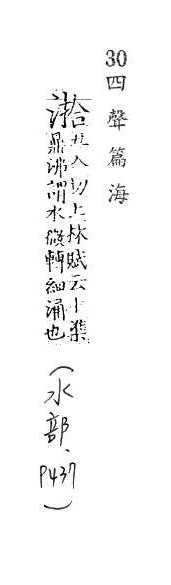 30四聲篇海
丑入切上林賦云
鼎沸謂水微轉細涌也
（水部、P437）